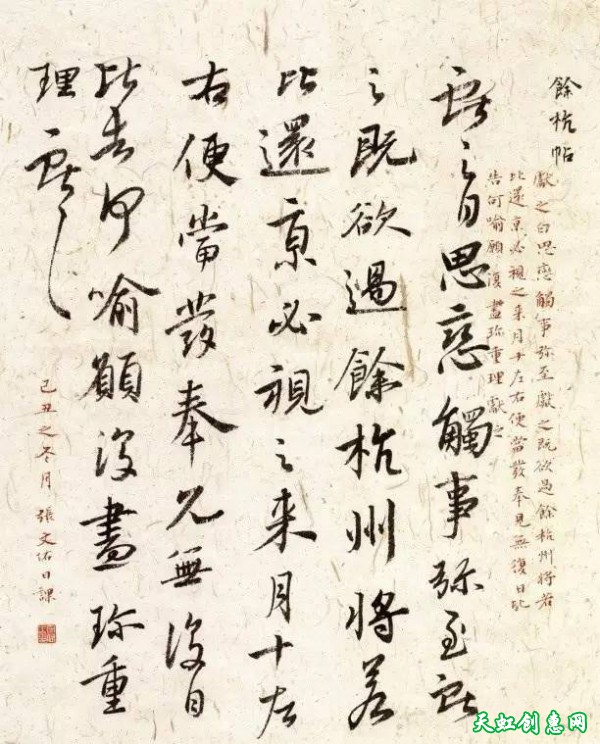 餘杭帖
獻之白思戀觸事弥至獻之既欲過餘杭州將若
比還京必視之来月十左右便當發奉見無復日比
告何喻願復盡珍重理獻之
獻之白思戀觸事弥至獻
之既欲過餘杭州將若
比還京必視之来月十左
右便當發奉見無復日
比告何喻願復盡珍重
理獻之
己丑之冬月張文佑日課
天虹创惠网